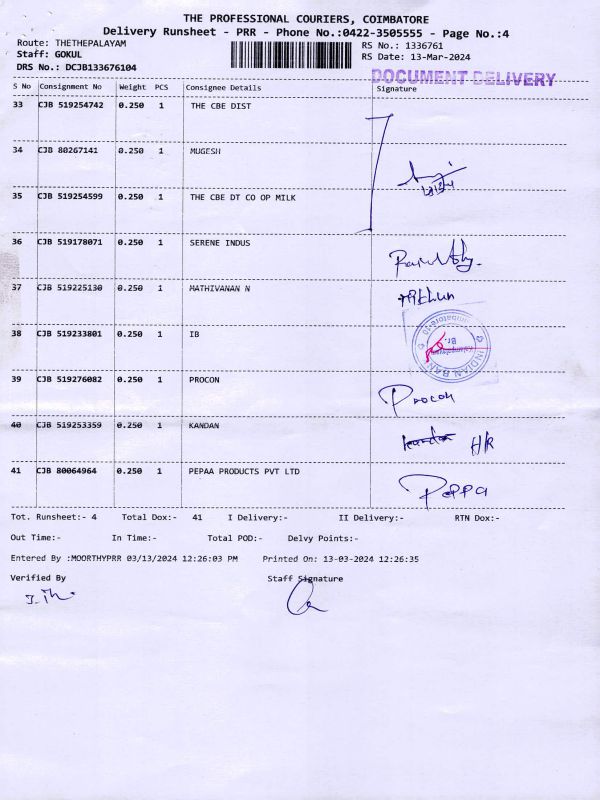 THE PROFESSIONAL COURIERS, COIMBATORE
Delivery Runsheet - PRR - Phone No.:0422-3505555 - Page No.:4
Route: THETHEPALAYAM
Staff: GOKUL
DRS No.: DCJB133676104
RS No.: 1336761
RS Date: 13-Mar-2024
DOCUMENT DELIVERY
S No Consignment No Weight PCS Consignee Details Signature
33 CJB 519254742 0.250 1 THE CBE DIST
34 CJB 80267141 0.250 1 MUGESH
35 CJB 519254599 0.250 1 THE CBE DT CO OP MILK
36 CJB 519178071 0.250 1 SERENE INDUS
37 CJB 519225130 0.250 1 MATHIVANAN N
38 CJB 519233801 0.250 1 IB
INDIAN BANK
39 CJB 519276082 0.250 1 PROCON
Procon
40 CJB 519253359 0.250 1 KANDAN
HR
41 CJB 80064964 0.250 1 PEPAA PRODUCTS PVT LTD
Peppa
Tot. Runsheet:- 4 Total Dox:- 41 I Delivery:- II Delivery:- RTN Dox:-
Out Time:- In Time:- Total POD:- Delvy Points:-
Entered By :MOORTHYPRR 03/13/2024 12:26:03 PM Printed On: 13-03-2024 12:26:35
Verified By Staff Signature